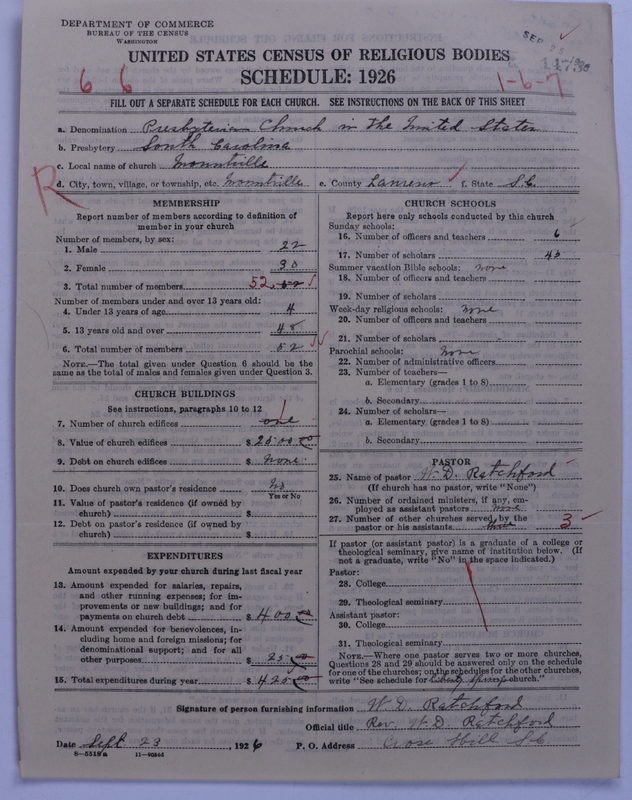 DEPARTMENT OF COMMERCE
BUREAU OF THE CENSUS
WASHINGTON
SEP 25
UNITED STATES CENSUS OF RELIGIOUS BODIES
SCHEDULE: 1926
6 6
1-6-7
FILL OUT A SEPARATE SCHEDULE FOR EACH CHURCH. SEE INSTRUCTIONS ON THE BACK OF THIS SHEET
a. Denomination Presbyterian Church in the United States
b. Presbytery South Carolina
c. Local name of church Mountville
R
d. City, town, village, or township, etc. Mountville e. County Laurens f. State S.C.
MEMBERSHIP
Report number of members according to definition of
member in your church
Number of members, by sex:
1. Male 22
2. Female 30
3. Total number of members 52
Number of members under and over 13 years old:
4. Under 13 years of age 4
5. 13 years old and over 48
6. Total number of members 52
NOTE.—The total given under Question 6 should be
same as the total of males and females given under Question 3.
CHURCH BUILDINGS
See instructions, paragraphs 10 to 12
7. Number of church edifices one 1
8. Value of church edifices $ 2500 00
9. Debt on church edifices $ None
10. Does church own pastor's residence No
Yes or No
11. Value of pastor's residence (if owned by
church) $
12. Debt on pastor's residence (if owned by
church) $
EXPENDITURES
Amount expended by your church during last fiscal year
13. Amount expended for salaries, repairs,
and other running expenses; for im-
provements or new buildings; and for
payments on church debt $ 400 00
14. Amount expended for benevolences, in-
cluding home and foreign missions; for
denominational support; and for all
other purposes $ 25 00
15. Total expenditures during year $ 425 00
CHURCH SCHOOLS
Report here only schools conducted by this church
Sunday schools:
16. Number of officers and teachers 6
17. Number of scholars
Summer vacation Bible schools: None
18. Number of officers and teachers
19. Number of scholars
Week-day religious schools: None
20. Number of officers and teachers
21. Number of scholars
Parochial schools: None
22. Number of administrative officers
23. Number of teachers—
a. Elementary (grades 1 to 8)
b. Secondary
24. Number of scholars—
a. Elementary (grades 1 to 8)
b. Secondary
PASTOR
25. Name of pastor W. D. Ratchford
(If church has no pastor, write "None")
26. Number of ordained ministers, if any, em-
ployed as assistant pastors None
27. Number of other churches served by the
pastor or his assistants three 3
If pastor (or assistant pastor) is a graduate of a college or
theological seminary, give name of institution below. (If
not a graduate, write "No" in the space indicated.)
Pastor:
28. College
29. Theological seminary
Assistant pastor:
30. College
31. Theological seminary
NOTE.—Where one pastor serves two or more churches,
Questions 28 and 29 should be answered only on the schedule
for one of the churches; on the schedules for the other churches,
write "See schedule for Liberty Springs church."
Signature of person furnishing information W. D. Ratchford
Official title Rev. W. D. Ratchford
Date Sept 23, 1926 P. O. Address Cross Hill S.C.
8-5518a 11-9086d